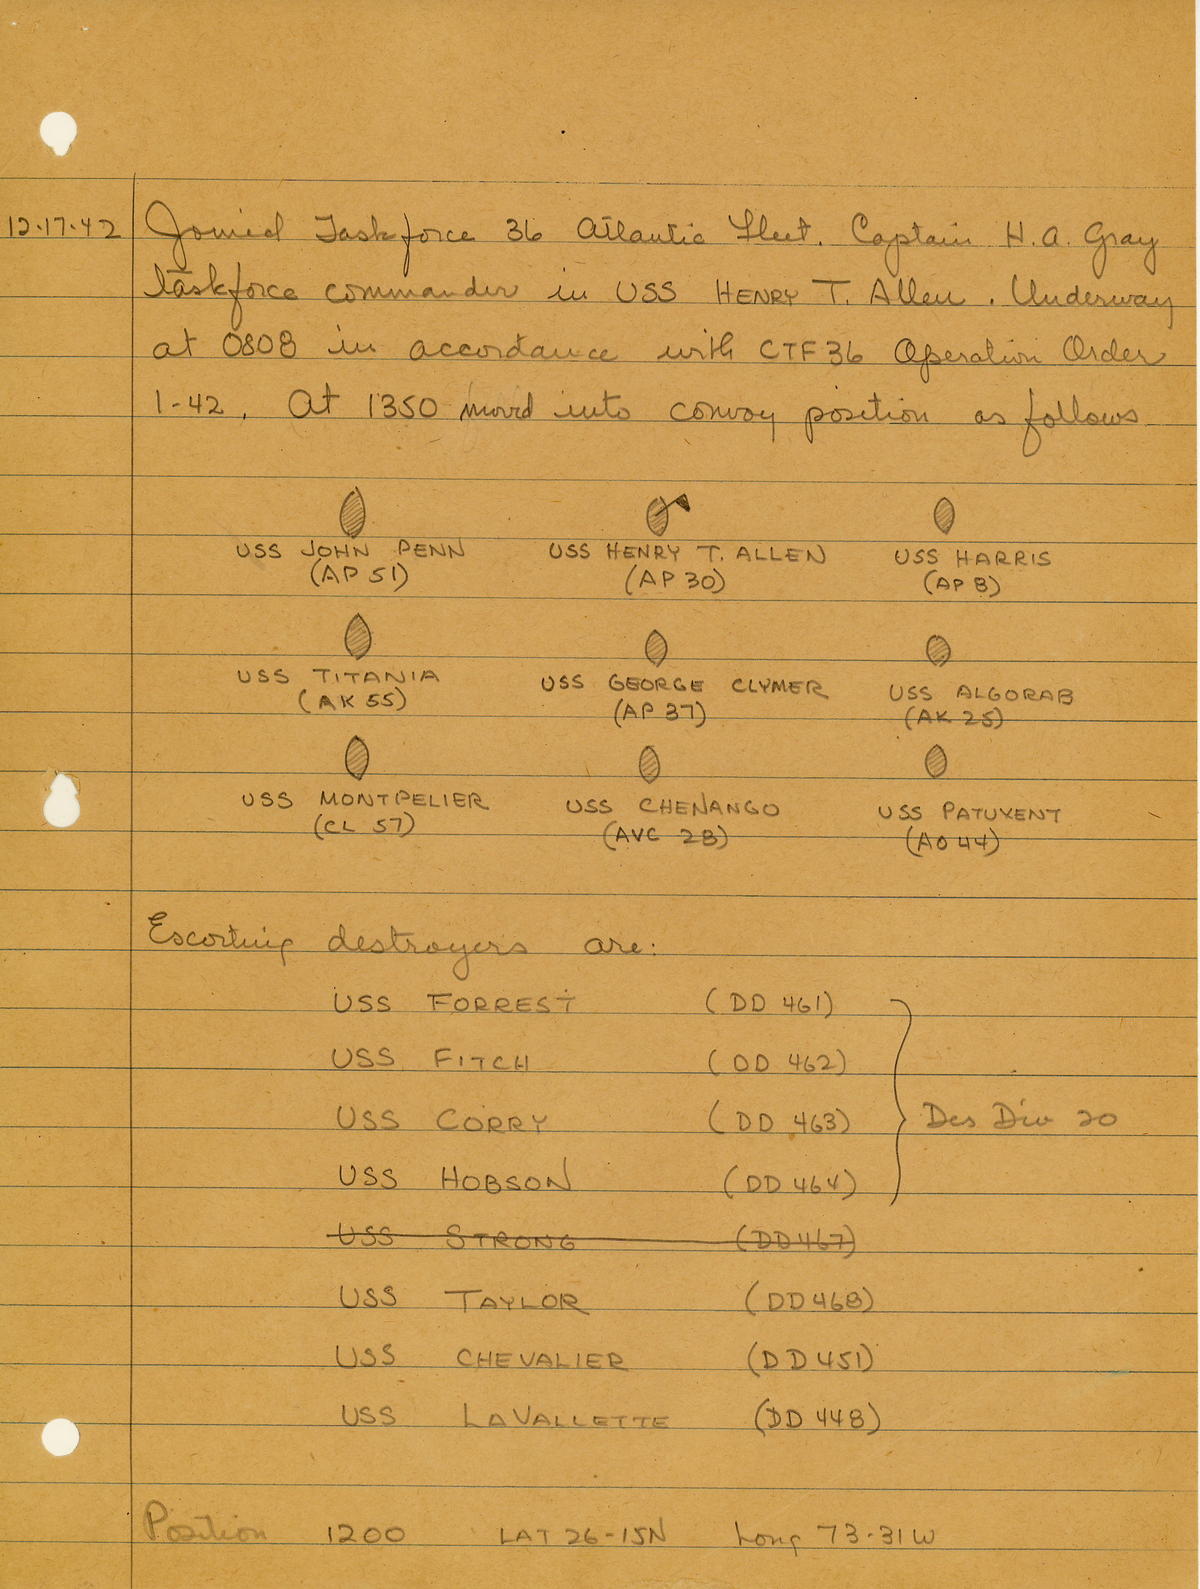 12-17-42 Joined Taskforce 36 Atlantic Fleet. Captain H.A. Gray
taskforce commander in USS HENRY T. Allen. Underway
at 0808 in accordance with CTF 36 Operation Order
1-42. At 1350 moved into convoy position as follows
USS JOHN PENN USS HENRY T. ALLEN USS HARRIS
(AP 51) (AP 30) (AP 8)
USS TITANIA USS GEORGE CLYMER USS ALGORAB
(AK 55) (AP 37) (AK 25)
USS MONTPELIER USS CHENANGO USS PATUXENT
(CL 57) (AVC 28) (AO 44)
Escorting destroyers are:
USS FORREST (DD 461)
USS FITCH (DD 462)
USS CORRY (DD 463) Des Div 20
USS HOBSON (DD 464)
USS STRONG (DD 467)
USS TAYLOR (DD 468)
USS CHEVALIER (DD 451)
USS LAVALLETTE (DD 448)
Position 1200 LAT 26-15N Long 73-31W